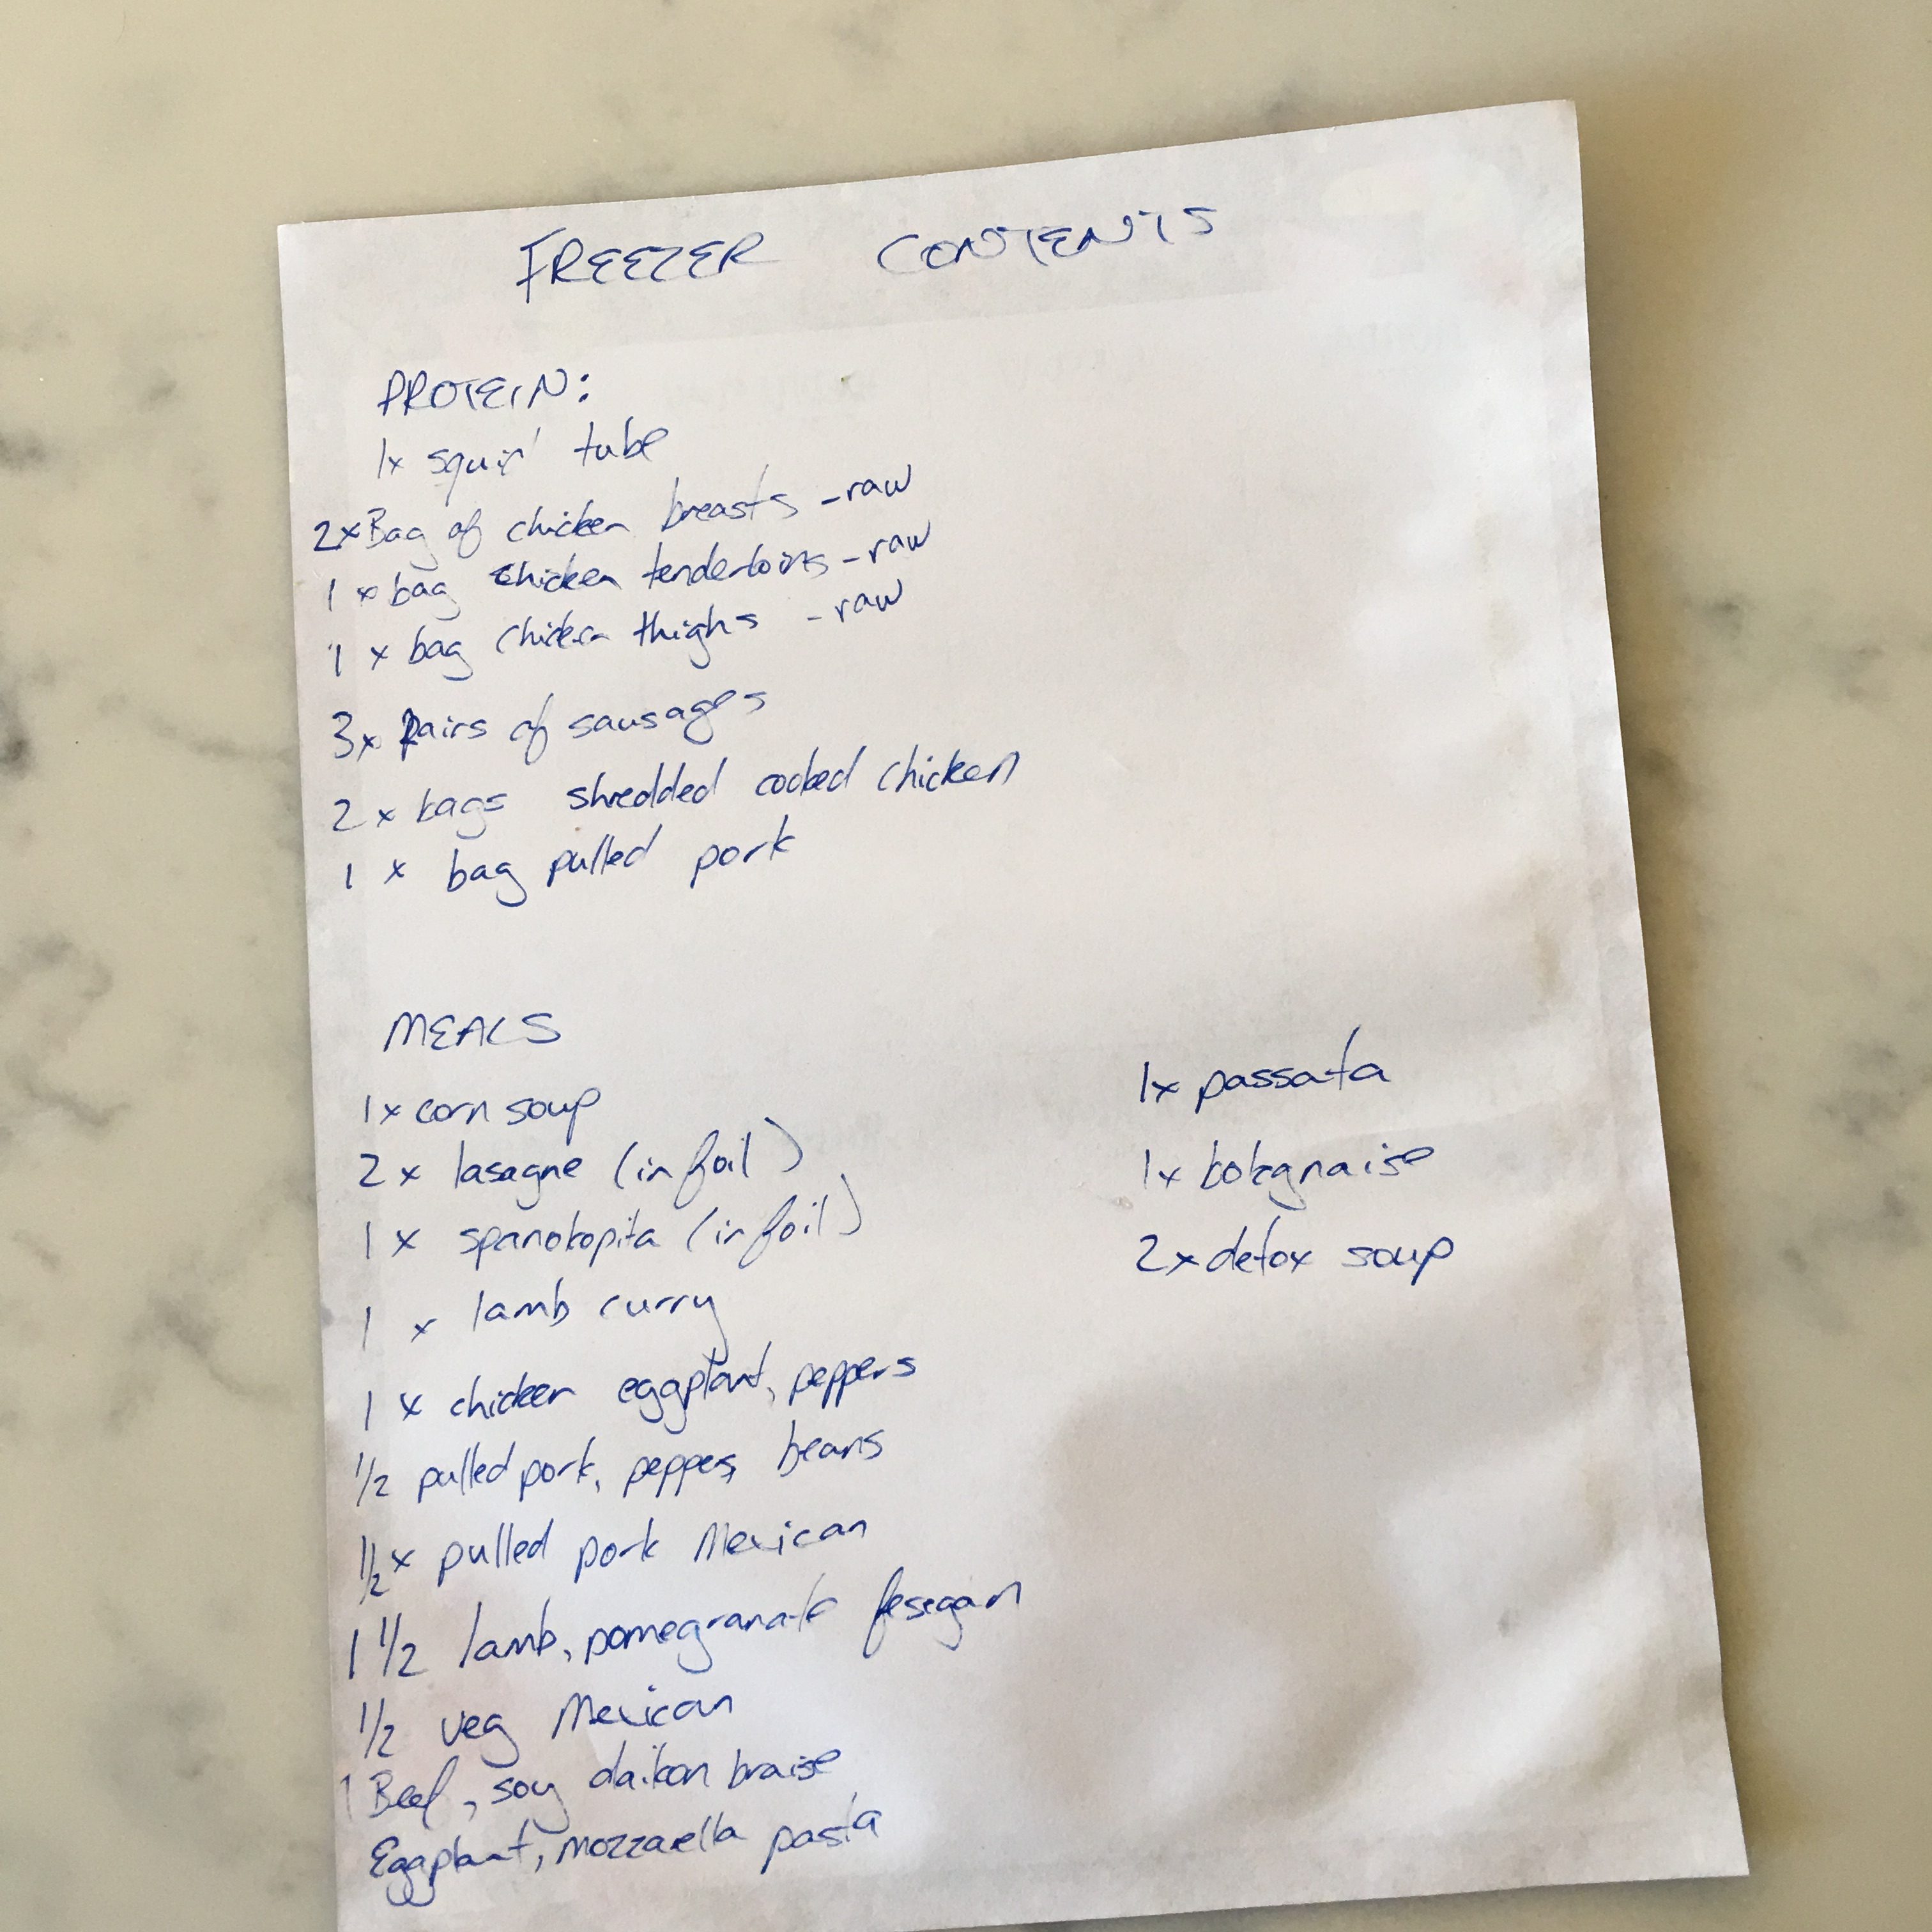 FREEZER CONTENTS
PROTEIN:
1x tube
2x Bag of chicken breasts - raw
1 x bag chicken tenderloins - raw
1 x bag chicken thighs - raw
3x Pairs of sausages
2 x bags shredded cooked chicken
1 x bag pulled pork
MEALS
1x corn soup
2x lasagne (in foil)
1 x spanokopita (in foil)
1 x lamb curry
1 x chicken eggplant, peppers
1/2 pulled pork, peppers, beans
1/2 x pulled pork Mexican
1 1/2 lamb, pomegranate fesegan
1/2 veg Mexican
1 Beef, soy daikon braise
Eggplant, mozzarella pasta
1x passata
1x bolognaise
2x detox soup